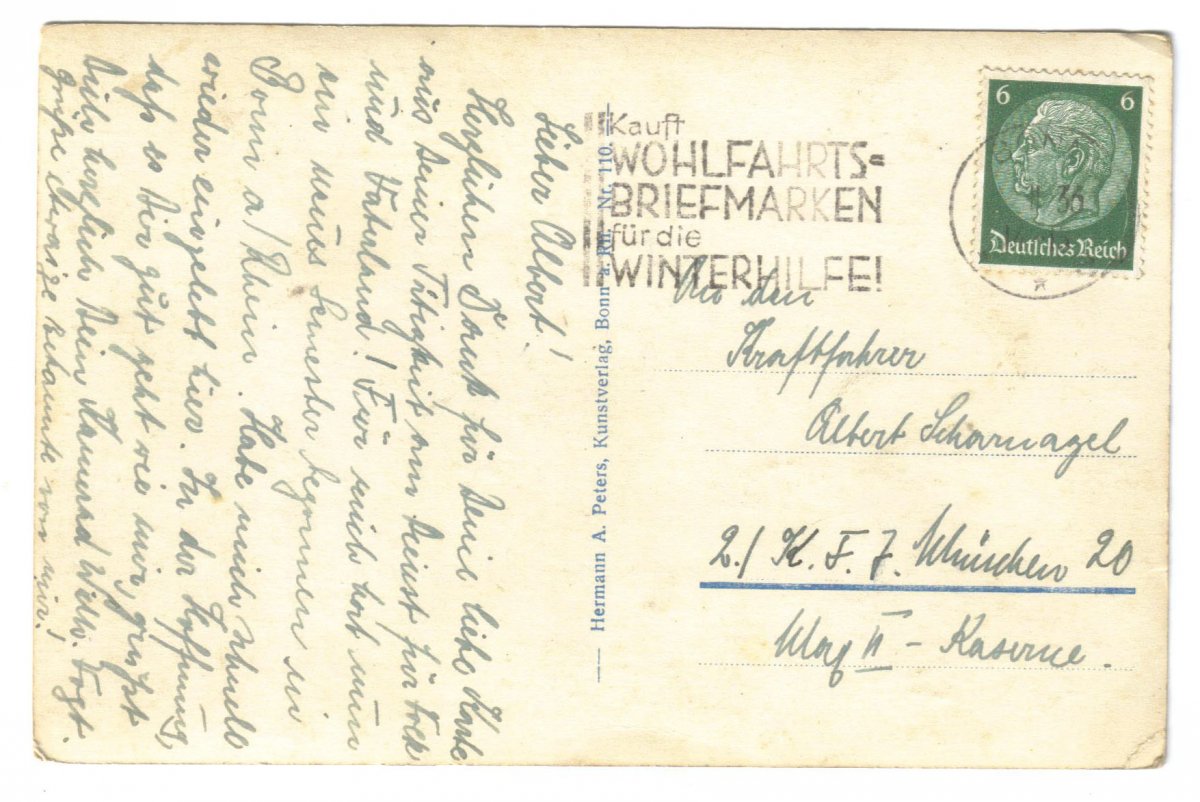 Lieber Albert!
Herzlichen Dank für Deine liebe Karte
aus Deiner Tätigkeit am Dienst für Volk
und Vaterland! Für mich hat nun
ein neues Semester begonnen in
Bonn a/Rhein. Habe mich schnell
wieder eingelebt hier. In der Hoffnung,
daß es Dir gut geht wie mir, grüßt
Dich herzlich Dein Kamerad Willi Vogt.
grüße etwaige Bekannte von mir!
Hermann A. Peters, Kunstverlag, Bonn a. Rh. Nr. 110.
Kauft
WOHLFAHRTS=
BRIEFMARKEN
für die
WINTERHILFE!
6 6
Deutsches Reich
36
An den
Kraftfahrer
Albert Scharnagel
2./ K. F. 7. München 20
Max II - Kaserne.